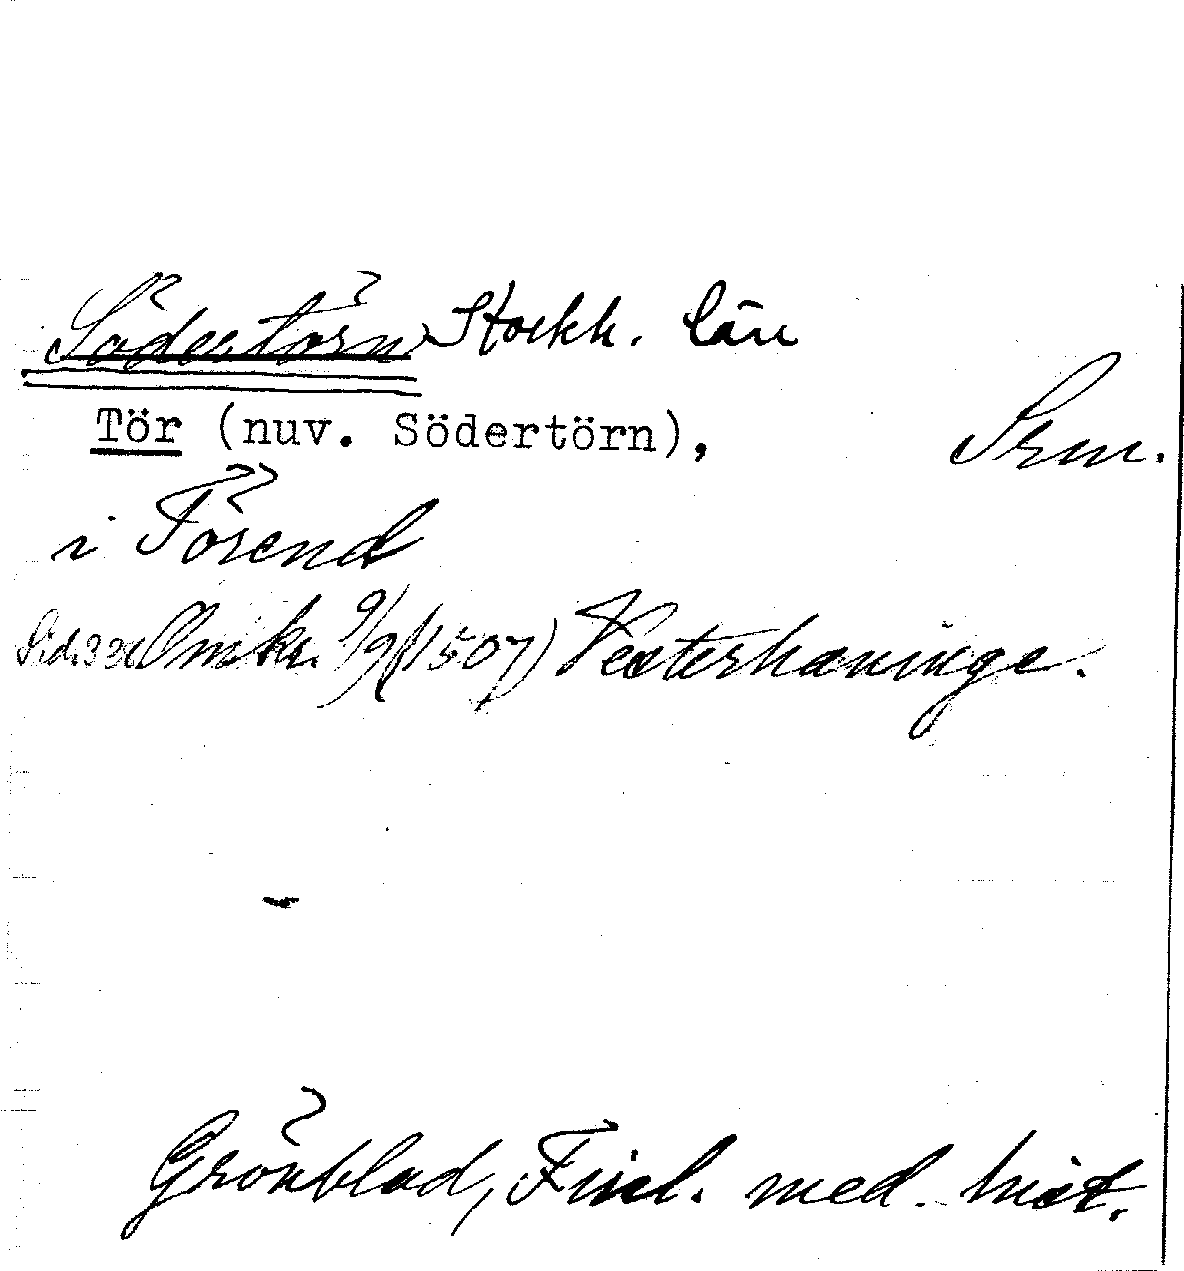 Södertörn Stockh. län
Tör (nuv. Södertörn),
Srm.
i Törend
Sid. 331 Omkr. 9/9 (1507) Vesterhaninge.
Grönblad, Finl. med. hist.